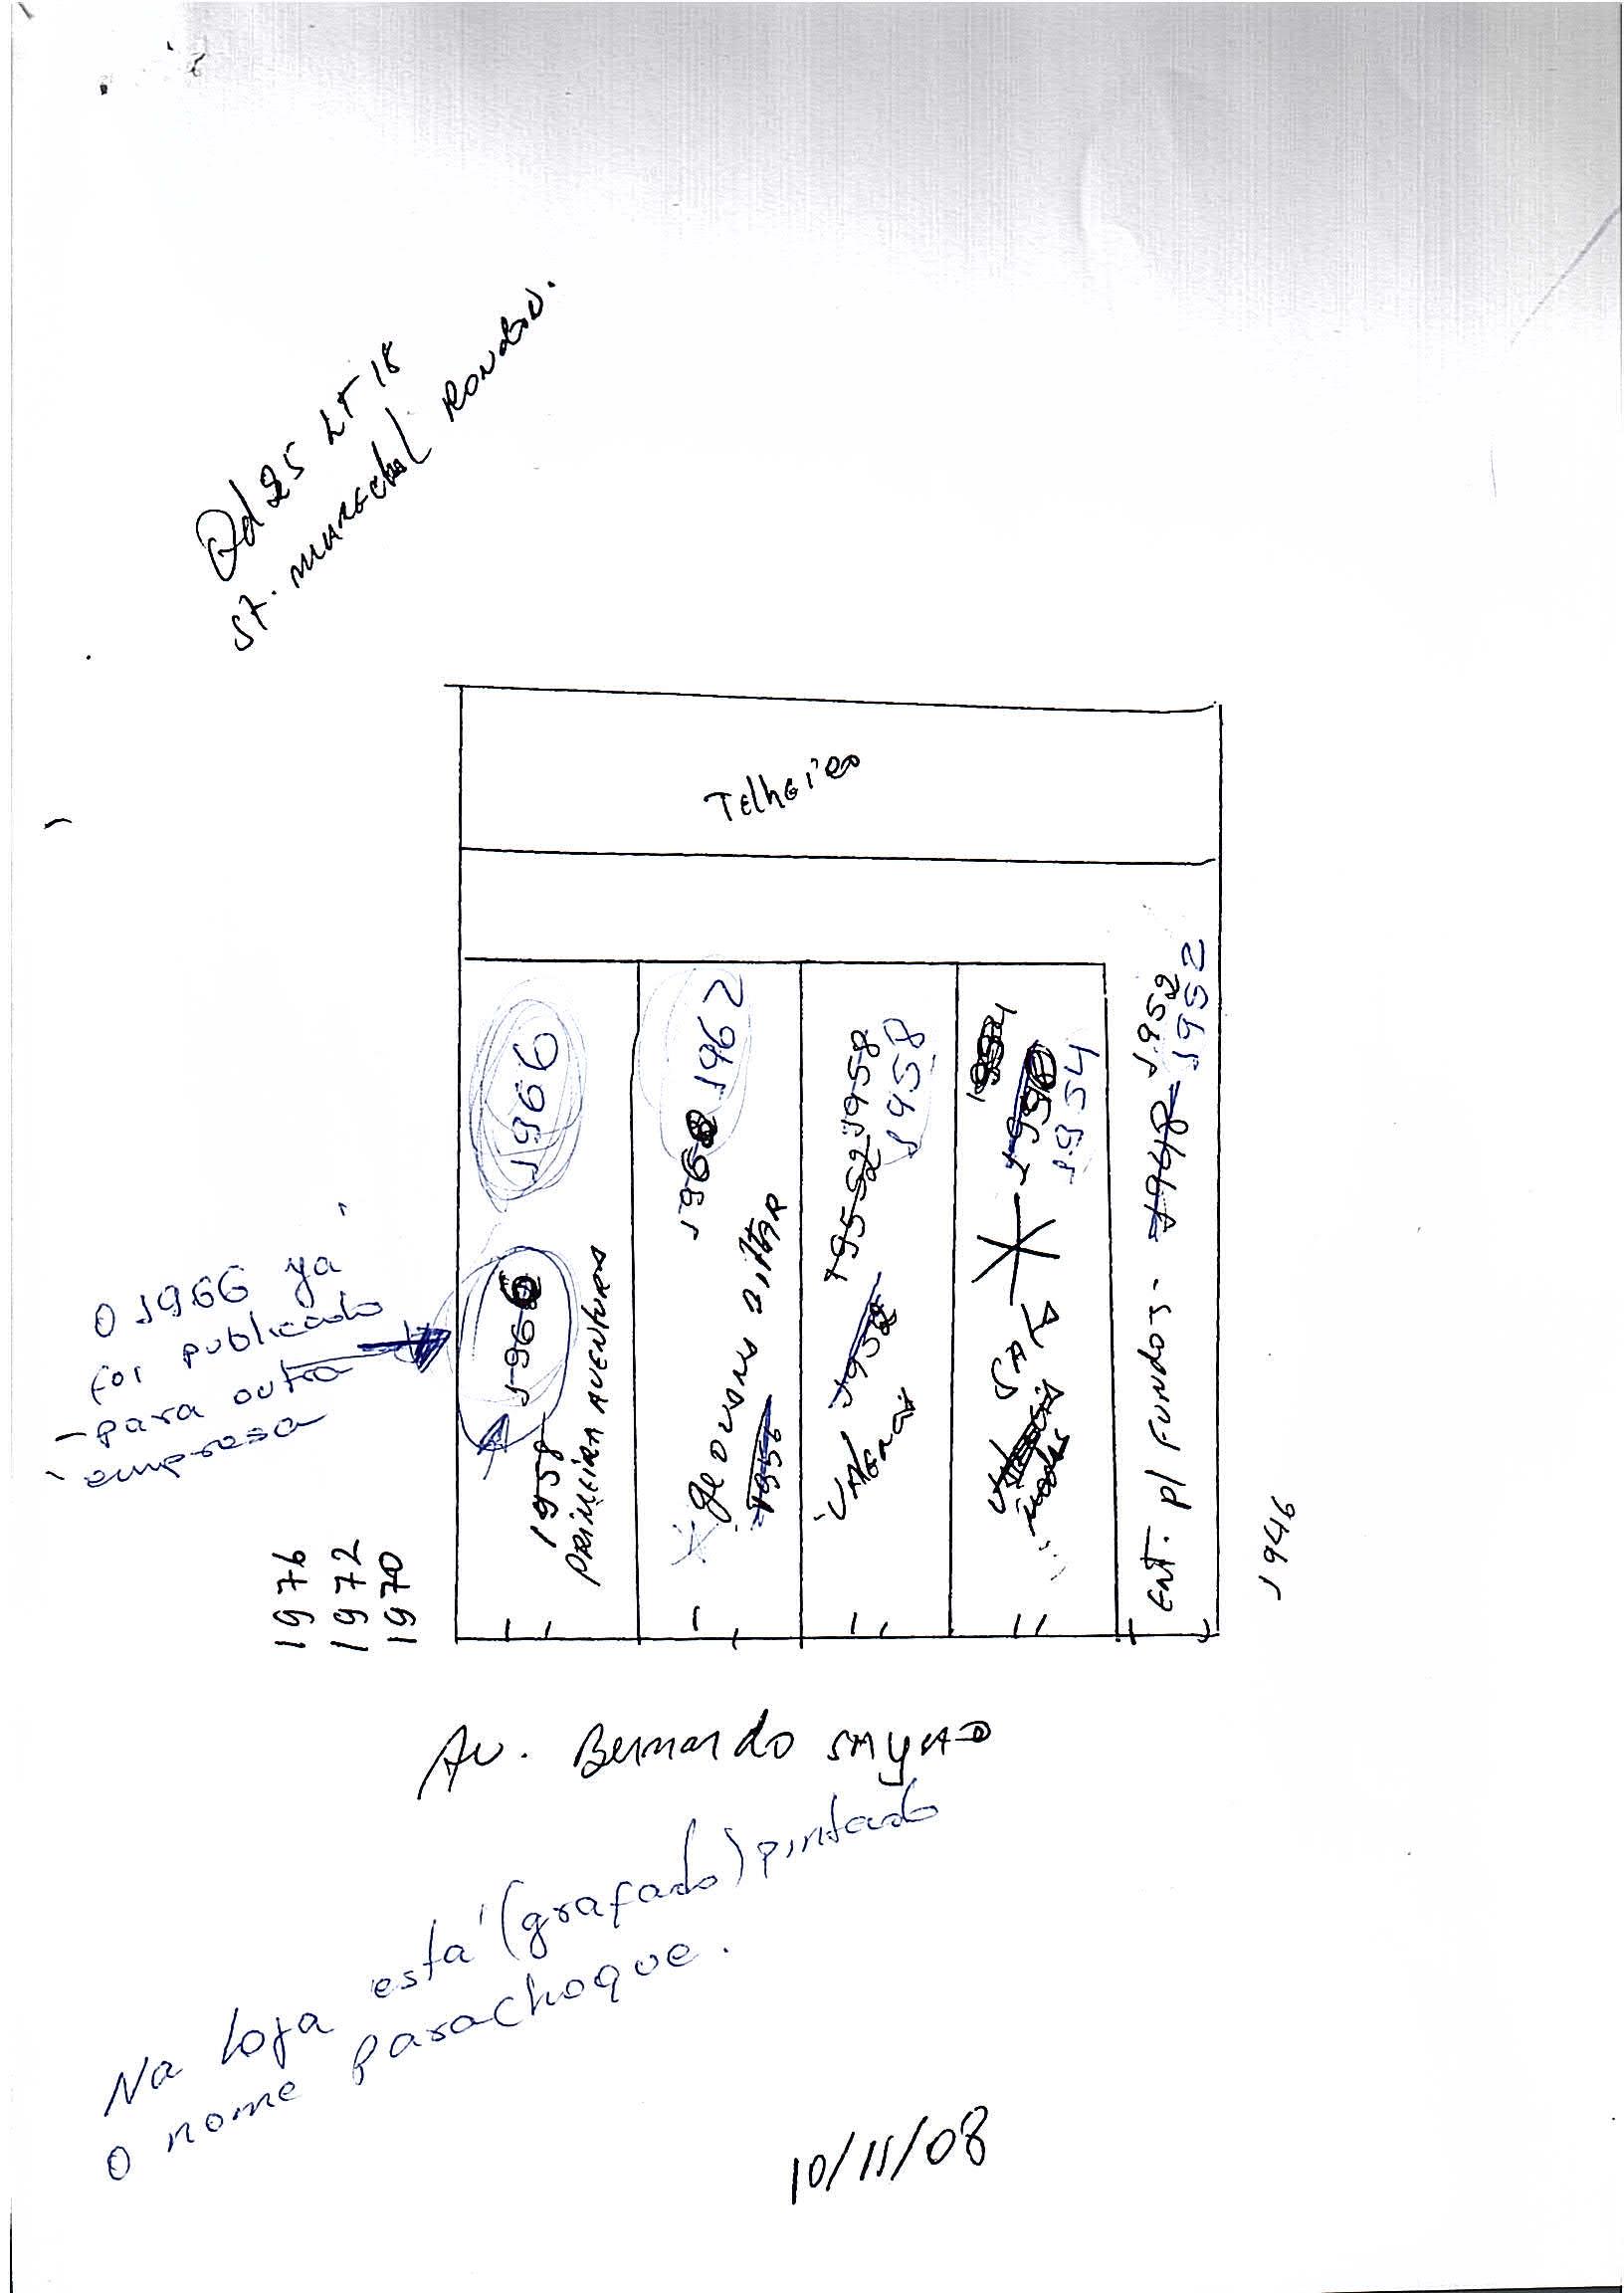 Qd 25 LT 18
ST. MARECHAL RONDON.
Telheiro
1966
1962
1968
1958
1952
1958
1954
1952
1948
1952
1966
1958
PRIMEIRA AVENTURA
Geovani
1956
1952
SALA
modas
ENT. p/ FUNDOS -
O 1966 ya
foi publicado
- para outra
- empresa
1976
1972
1970
1946
Av. Bernardo SAYAO
Na loja está (grafado) pintado
o nome parachoque.
10/11/08